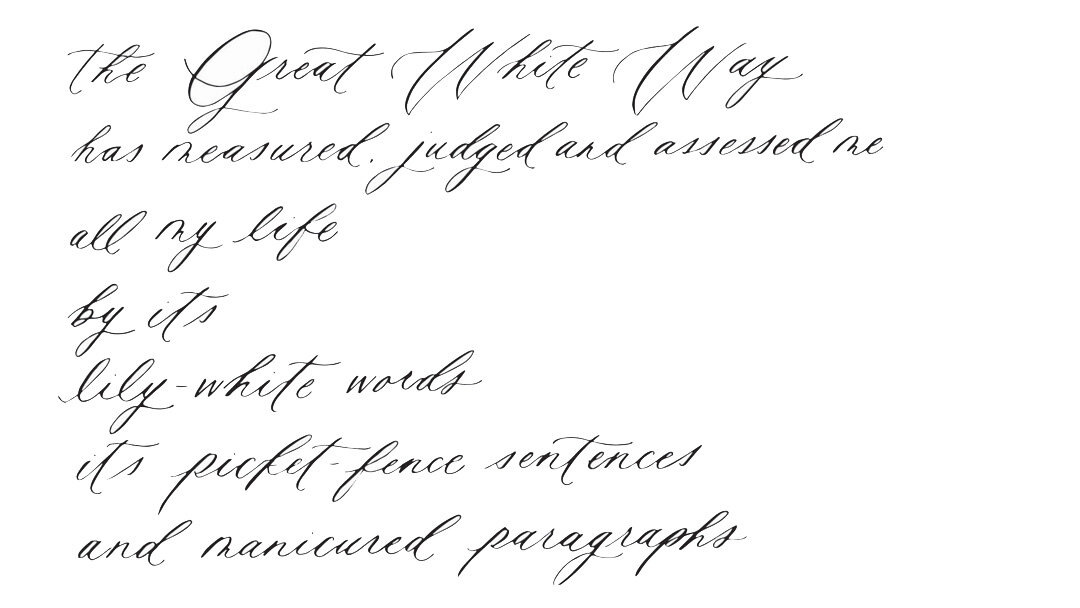 the Great White Way
has measured. judged and assessed me
all my life
by its
lily-white words
its picket-fence sentences
and manicured paragraphs